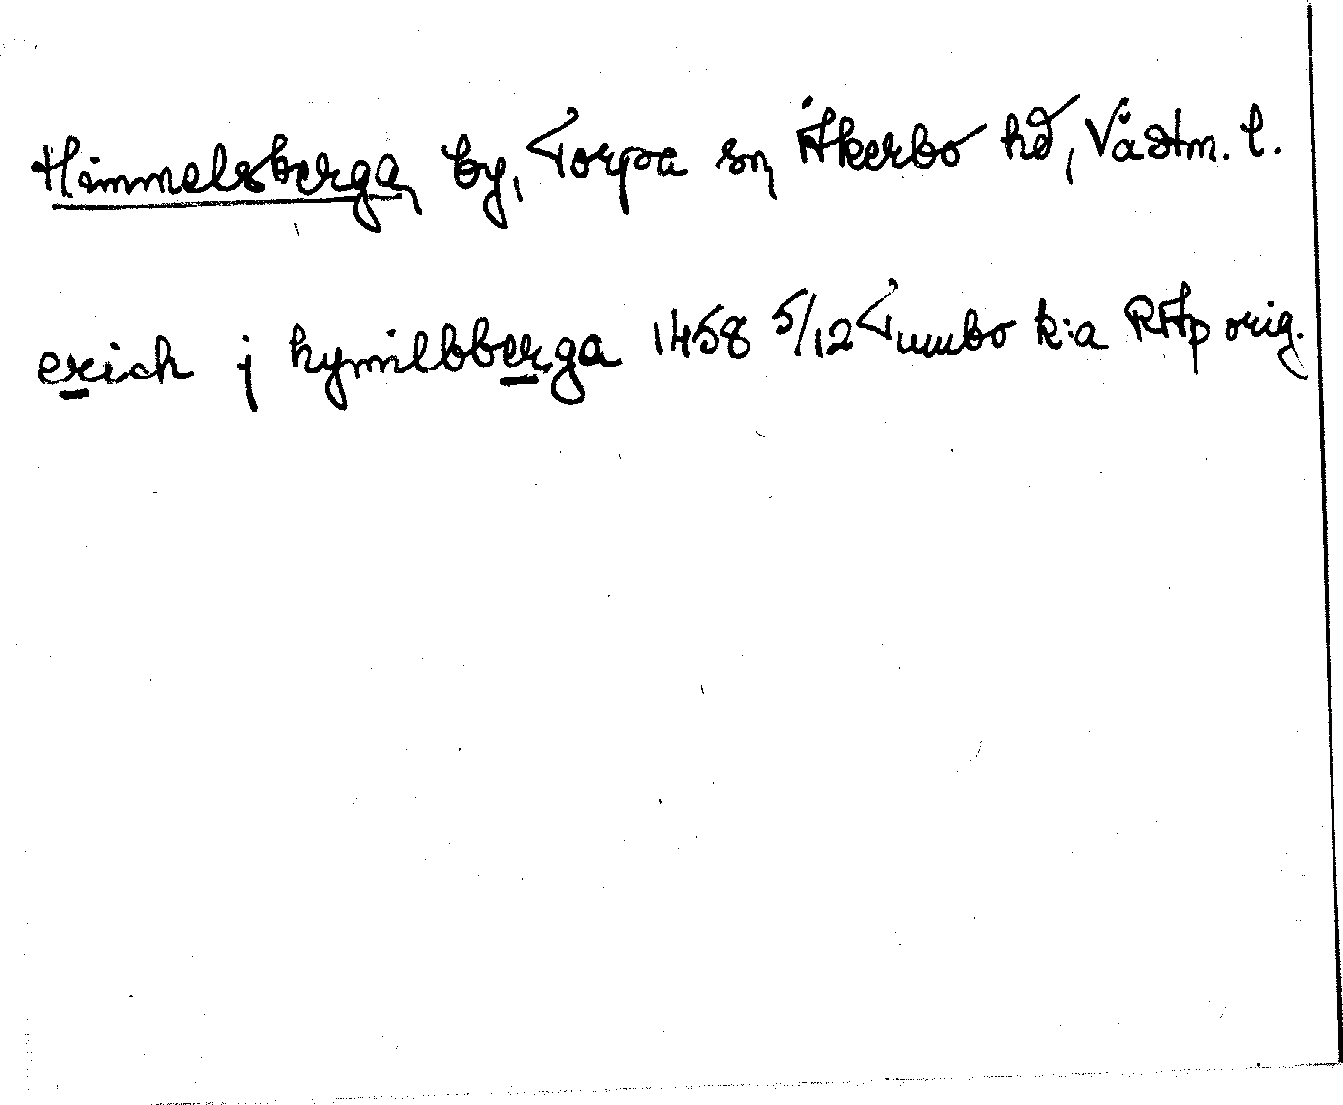 Himmelsberga, by, Torpa sn, Åkerbo hd, Västm. l.
erich j hymilbberga 1458 5/12 Tumbo k:a RAp orig.